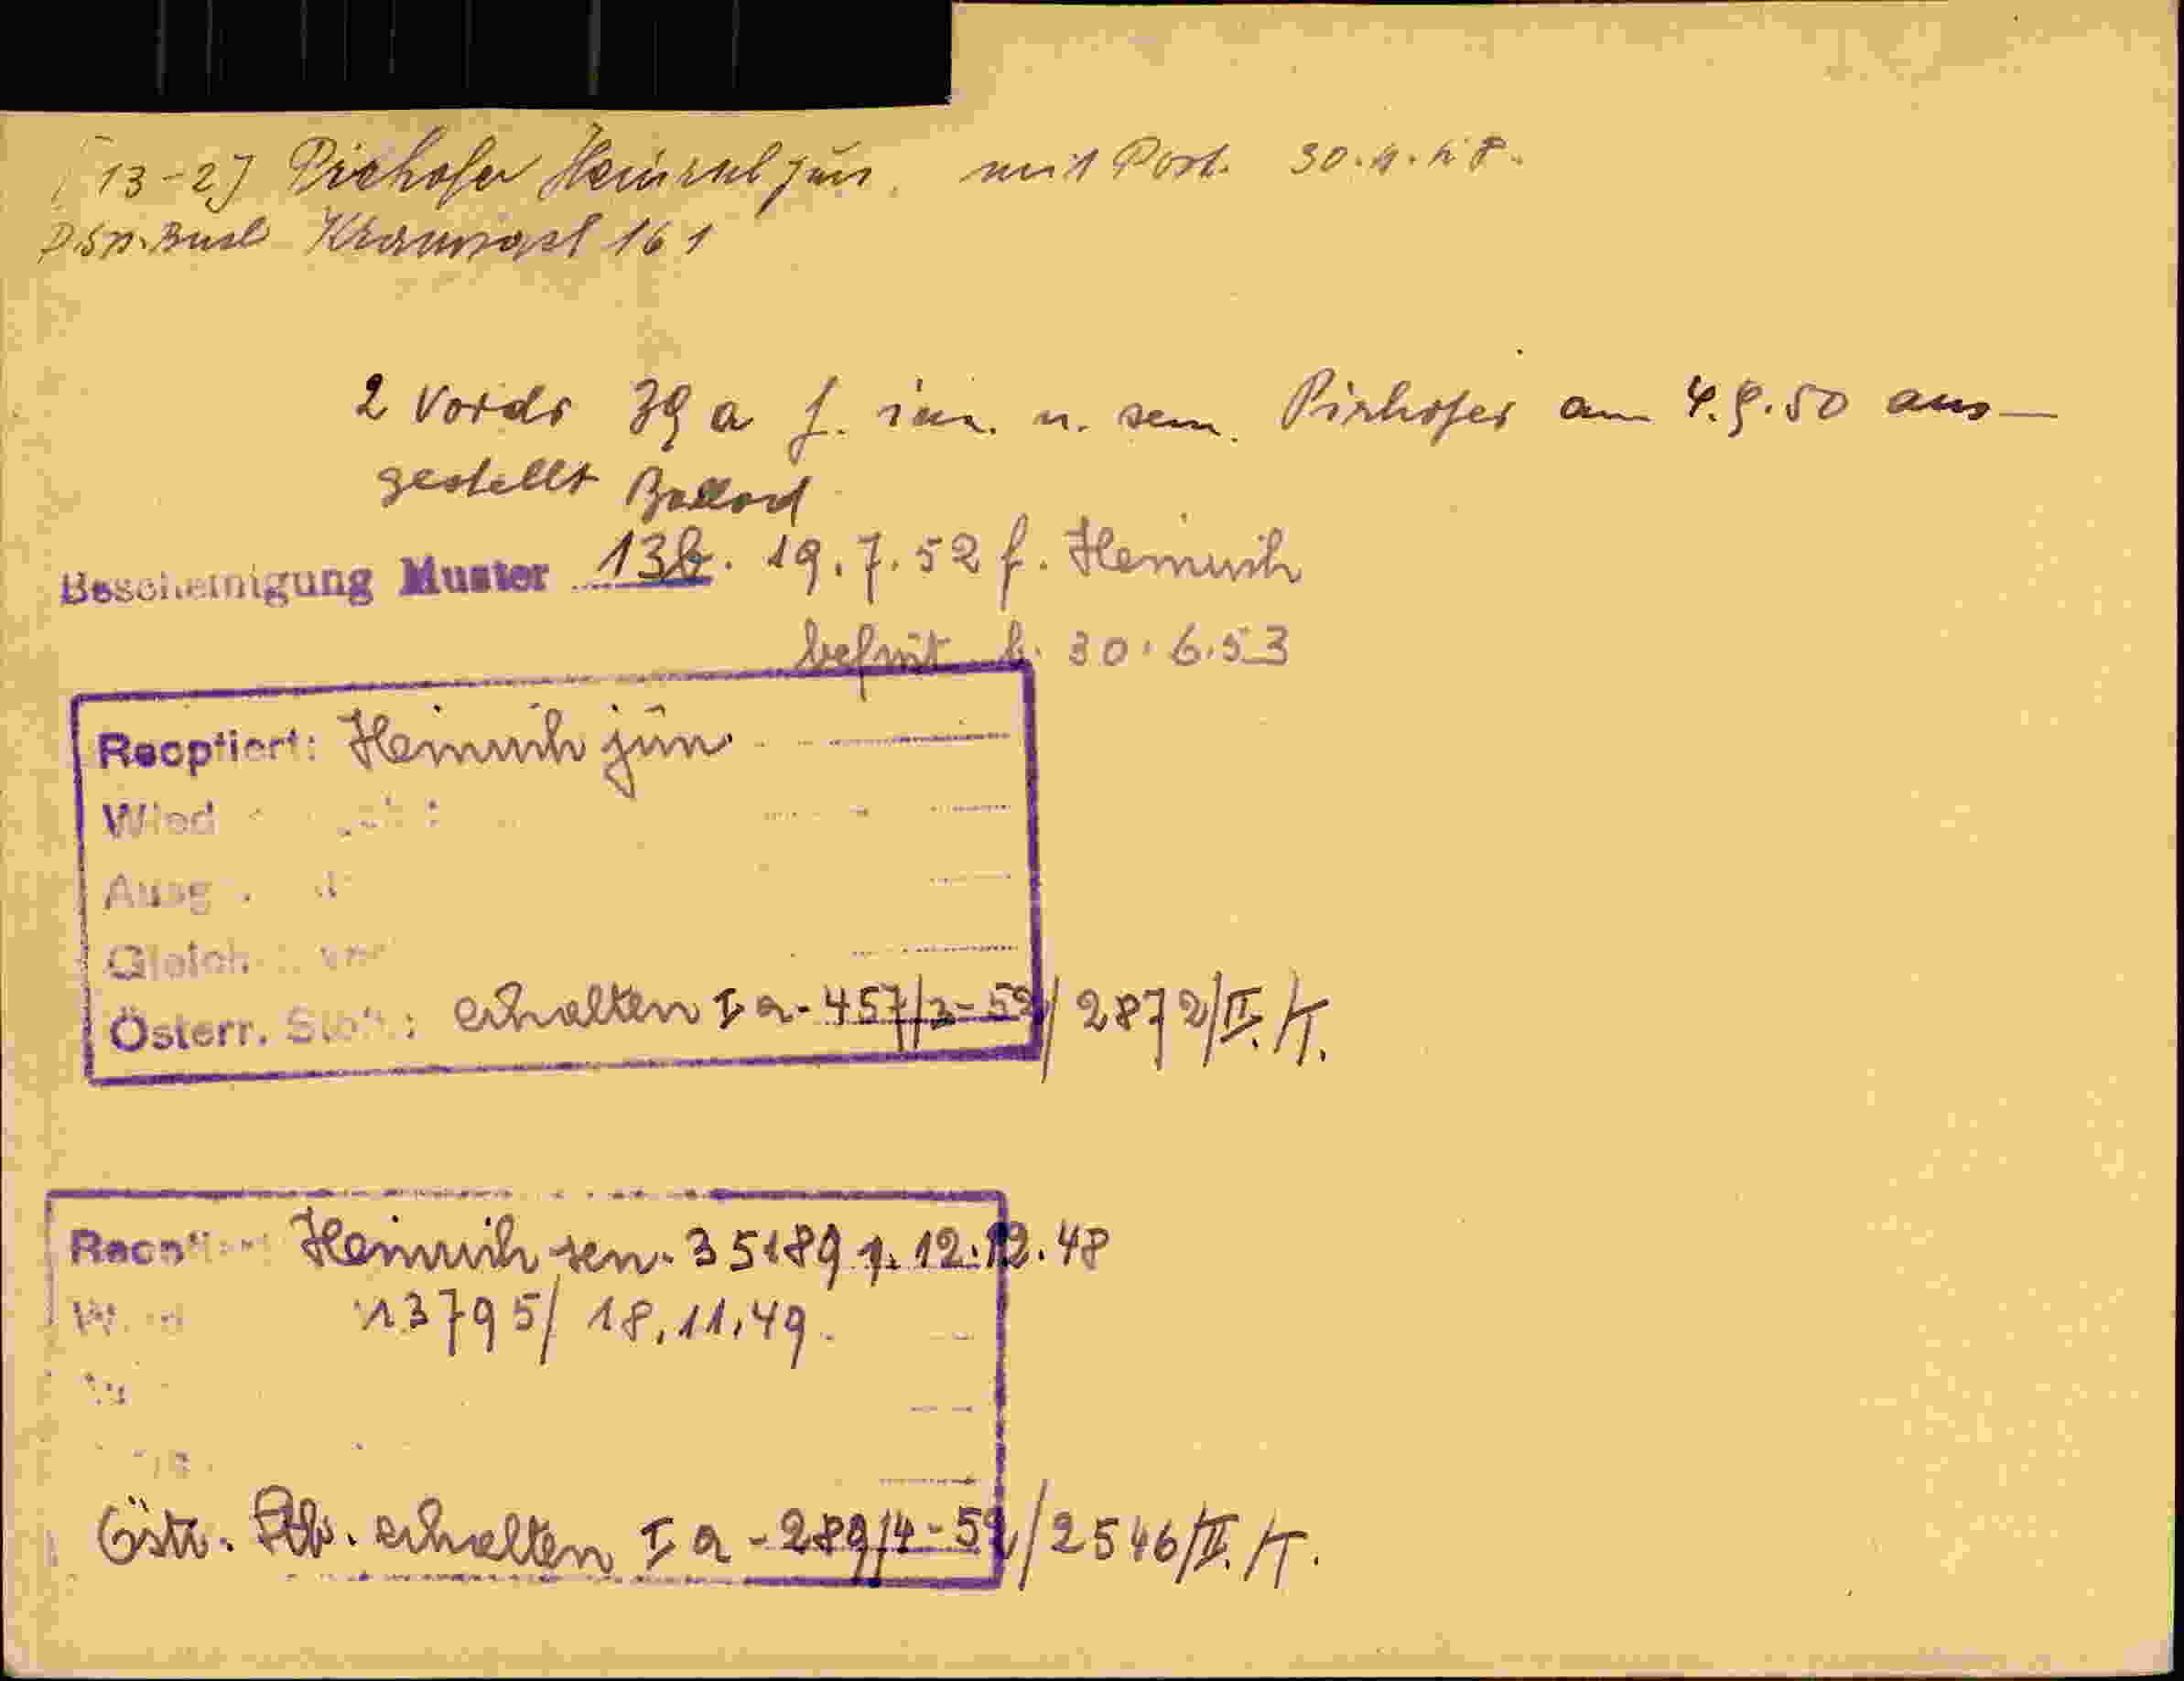 [13-2] Pirhofer Heinrich jun. mit Post. 30.4.48.
161
2 Vordr 39 a f. jun. u. sen. Pirhofer am 4.9.50 aus-
gestellt
Bescheinigung Muster 13b. 19.7.52 f. Heinrich
befrist. b. 30.6.53
Reoptiert: Heinrich jun
Österr. Stb.: erhalten I a-457/2-52/2872/II./T.
Heinrich sen. 35189 v. 12.12.48
13795/ 18.11.49.
Östr. Stb. erhalten I a-289/4-52/2546/II./T.